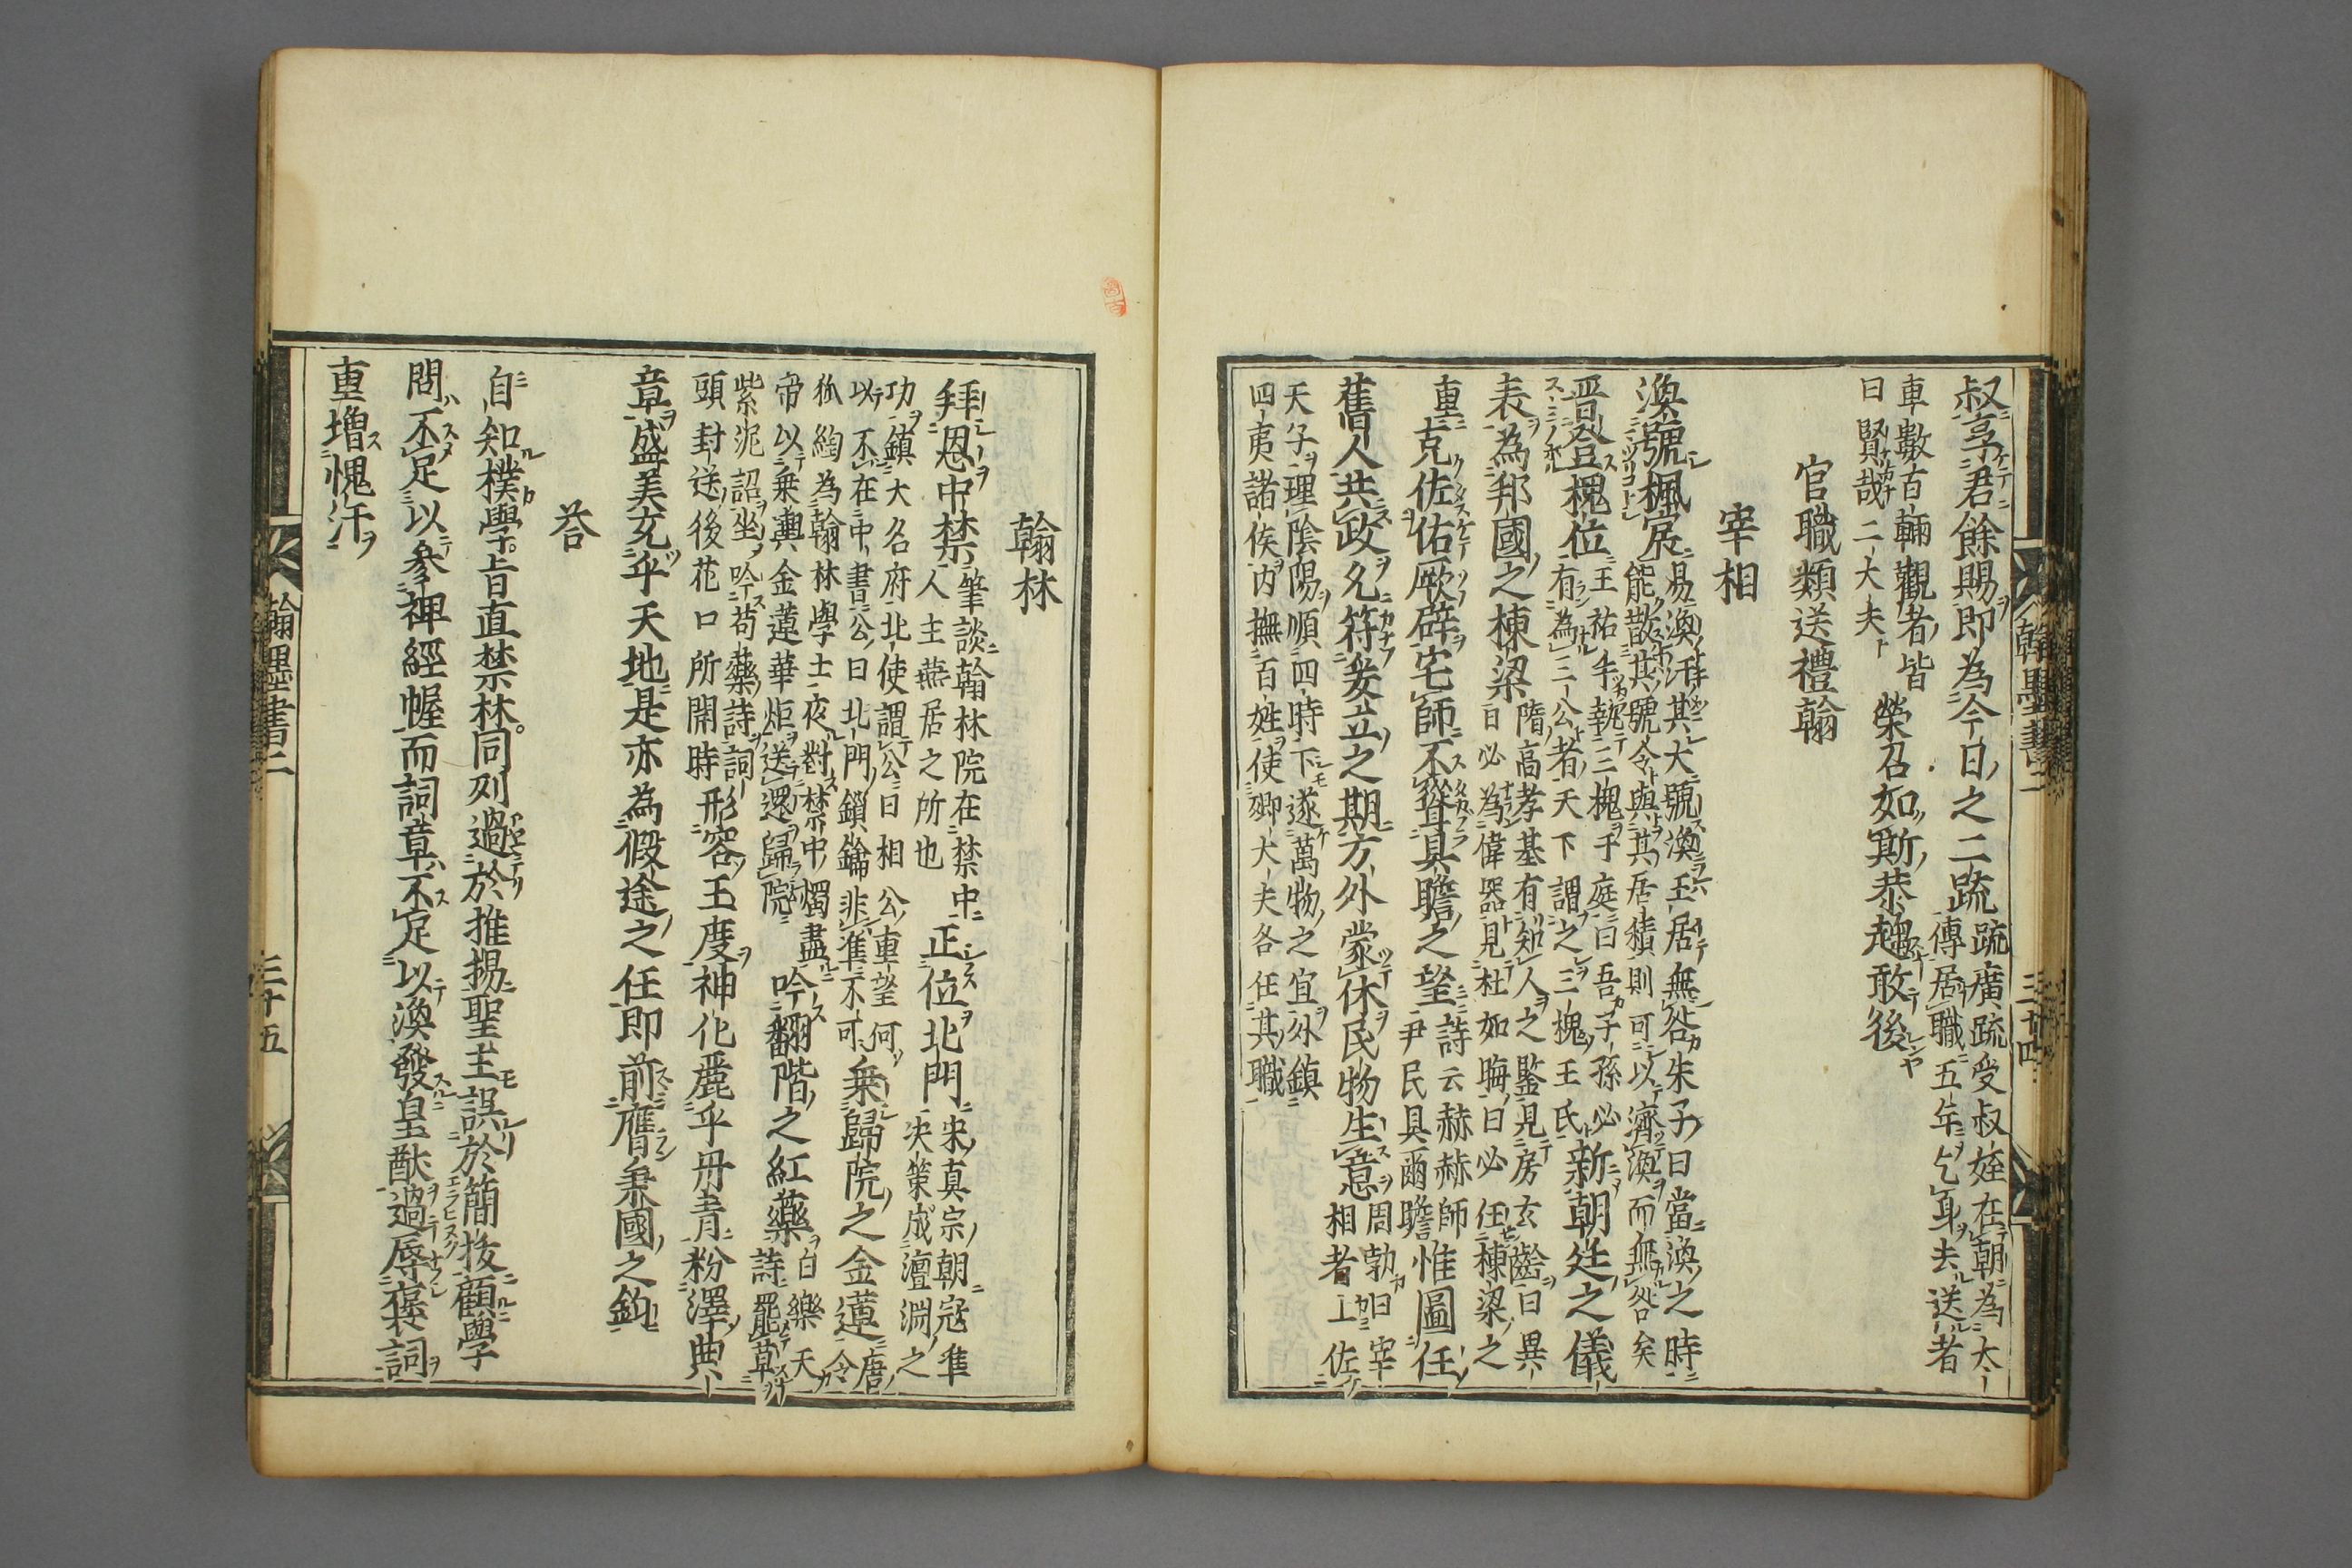 叔享君餘賜即為今日之二疏疏廣疏受叔姪在朝為太
傅居職五年乞身去送者
車數百輛觀者皆
曰賢哉二大夫
榮召如斯恭趨敢後
官職類送禮翰
宰相
渙號楓宸易渙汗其大號渙王居無咎朱子曰當渙之時
能散其號令與其居積則可以濟渙而無咎矣
晋登槐位王祐手執三槐于庭曰吾子孫必
有為三公者天下謂之三槐王氏
新朝廷之儀
表為邦國之棟梁隋高孝基有知人之鑒見房玄齡曰異
日必為偉器見杜如晦曰必任棟梁之
重克佐佑厥辟宅師不聳具瞻之望詩云赫赫師
尹民具爾瞻
惟圖任
舊人共政允符爰立之期方外蒙休民物生意周勃曰宰
相者上佐
天子理陰陽順四時下遂萬物之宜外鎮
四夷諸侯内撫百姓使卿大夫各任其職
翰墨書二
三十四
翰林
拜恩中禁筆談翰林院在禁中
人主燕居之所也
正位北門宋真宗朝寇隼
决策成澶淵之
功鎮大名府北使謂公曰相公重望何
以不在中書公曰北門鎖鑰非準不可
乗歸院之金蓮唐令
狐綯為翰林學士夜對禁中燭盡
帝以乗輿金蓮華炬送還歸院
吟翻階之紅藥白樂天
詩罷草
紫泥詔坐吟苟藥詩詞
頭封送後花口所開時
形容王度神化麗乎丹青粉澤典
章盛美充乎天地是亦為假途之任即前膺秉國之鈞
荅
自知樸學旨直禁林同列過於推揚聖主誤於簡拔顧學
問不足以參裨經幄而詞章不足以渙發皇猷過辱褒詞
重增愧汗
翰墨書二
三十五